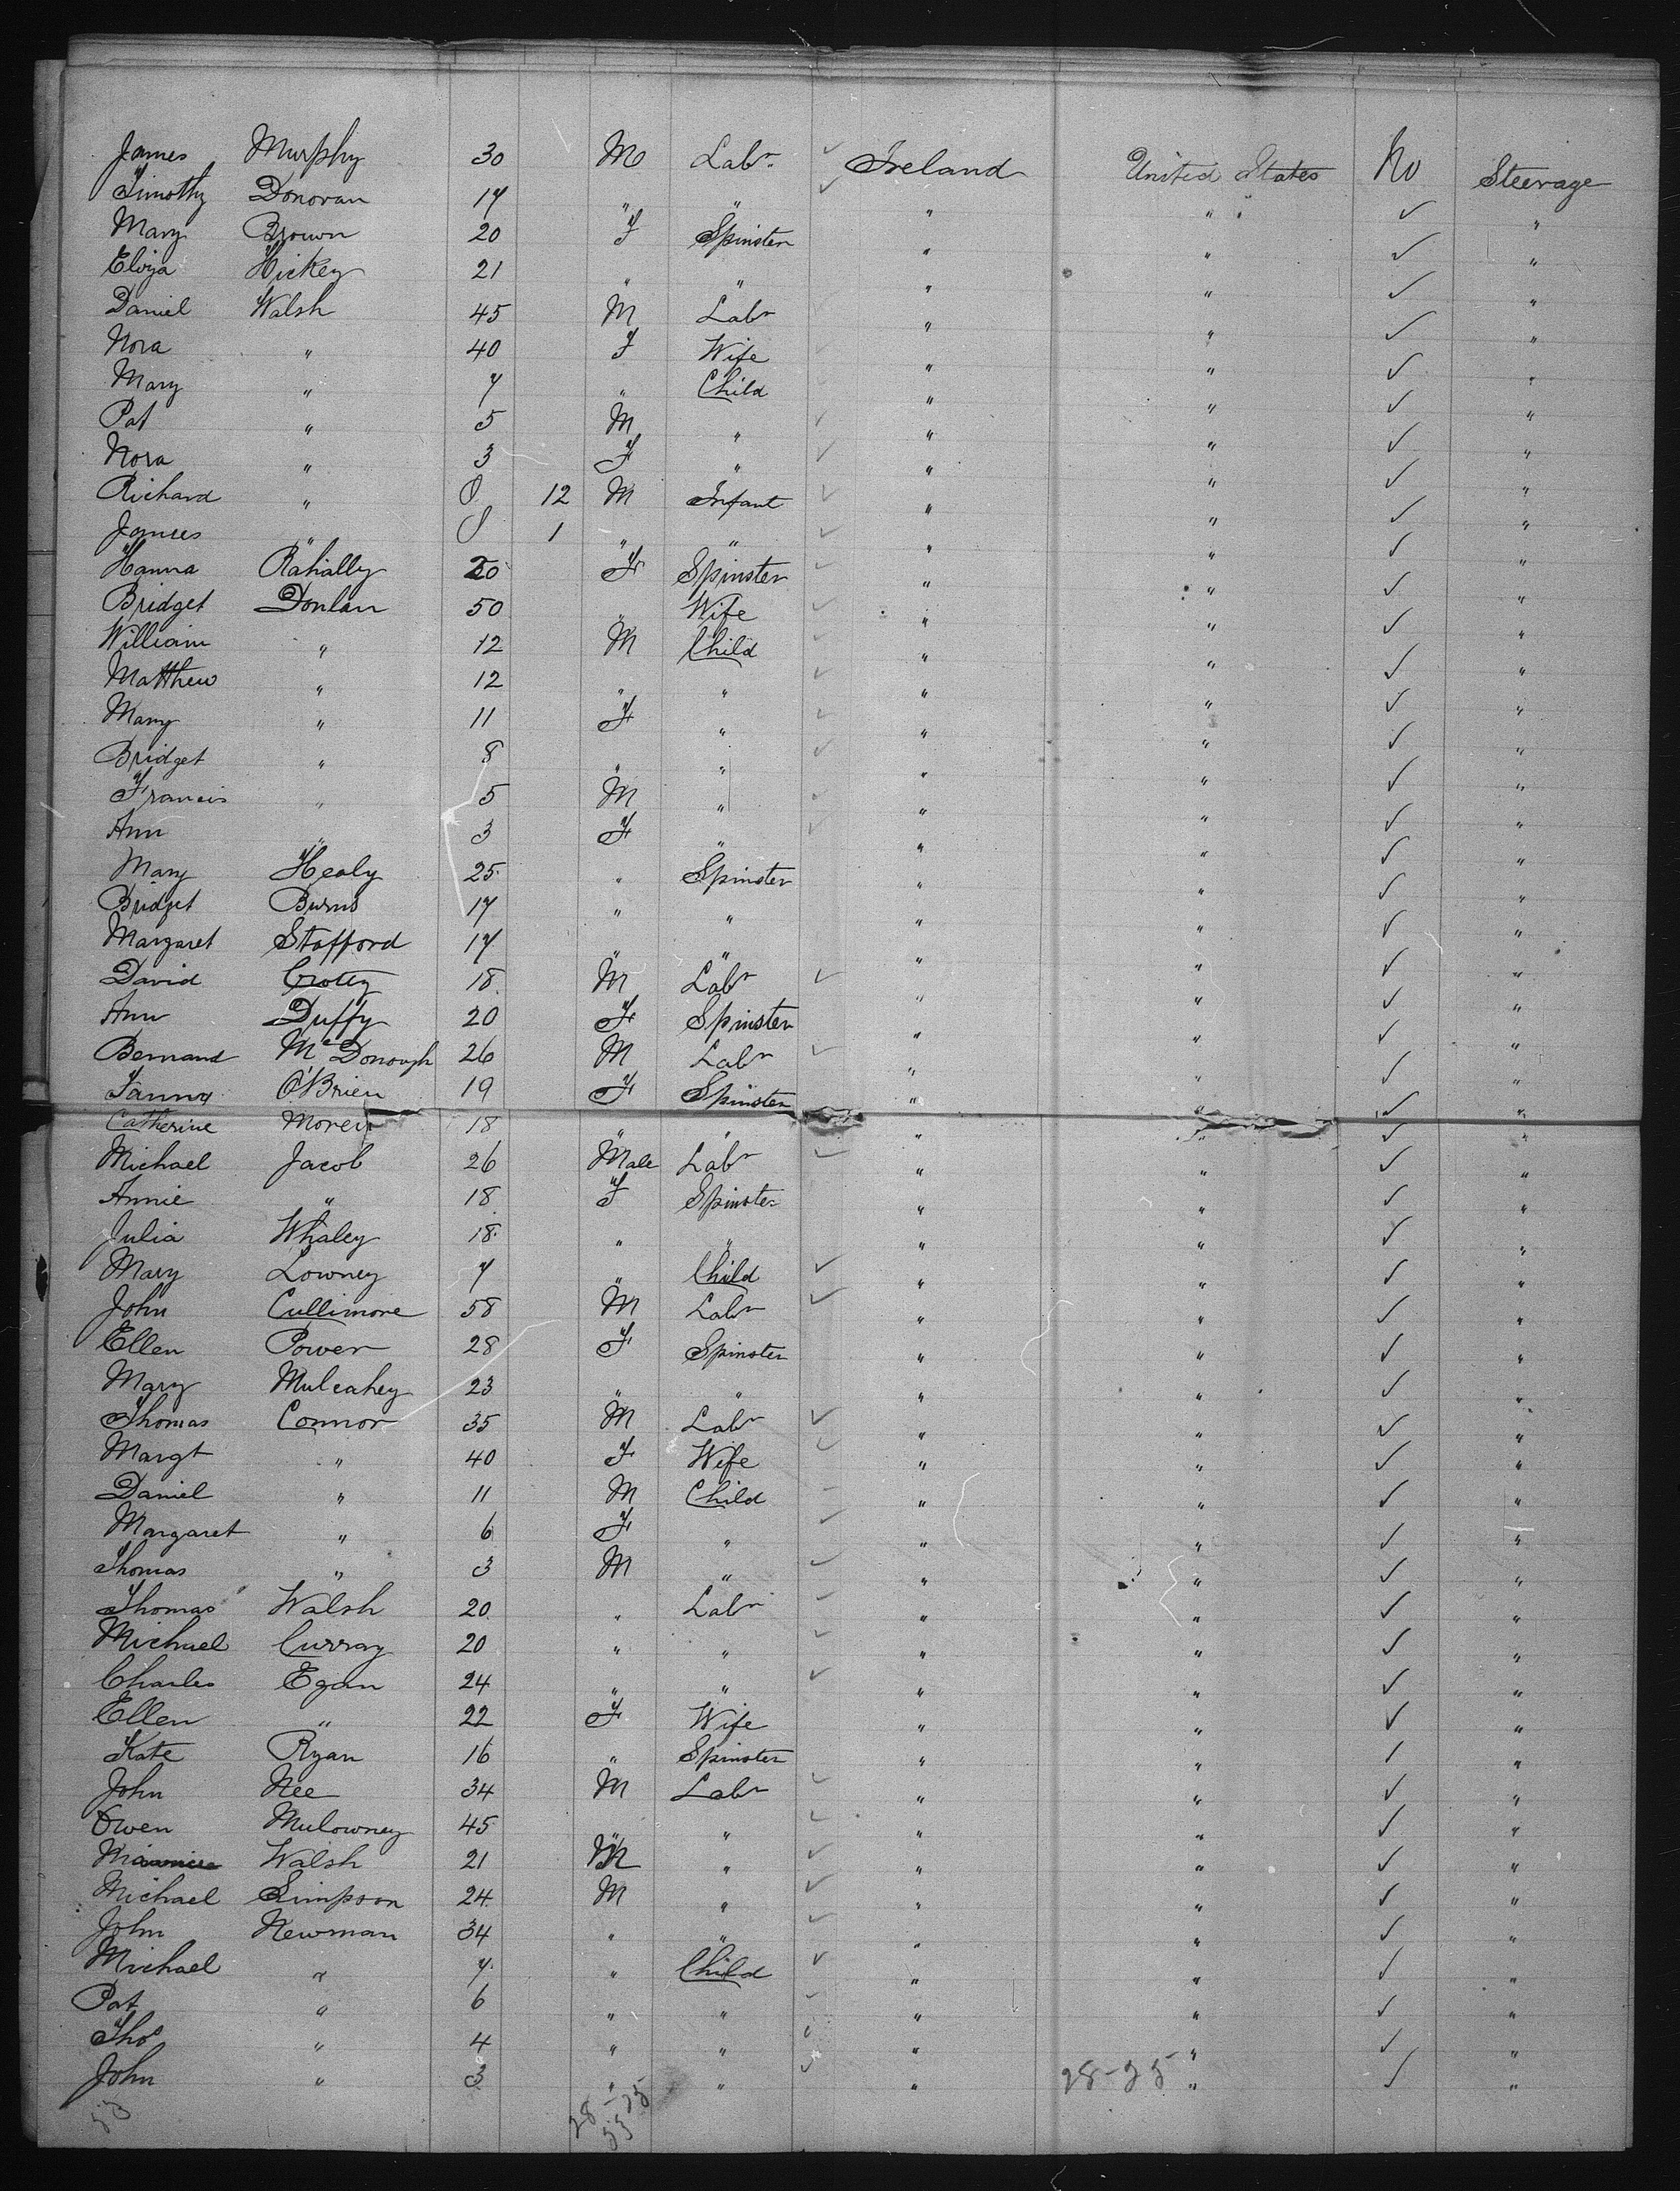 James Murphy 30 M Labr Ireland United States No Steerage
Timothy Donovan 17 " " " " ✓ "
Mary Brown 20 F Spinster " " ✓ "
Eliza Hickey 21 " " " " ✓ "
Daniel Walsh 45 M Labr " " ✓ "
Nora " 40 F Wife " " ✓ "
Mary " 7 " Child " " ✓ "
Pat " 5 M " " " ✓ "
Nora " 3 F " " " ✓ "
Richard " 0 12 M Infant " " ✓ "
James " 0 1 " " " " ✓ "
Hanna Rahally 20 F Spinster " " ✓ "
Bridget Donlan 50 " Wife " " ✓ "
William " 12 M Child " " ✓ "
Matthew " 12 " " " " ✓ "
Mary " 11 F " " " ✓ "
Bridget " 8 " " " " ✓ "
Francis " 5 M " " " ✓ "
Ann " 3 F " " " ✓ "
Mary Healy 25 " Spinster " " ✓ "
Bridget Burns 17 " " " " ✓ "
Margaret Stafford 17 " " " " ✓ "
David Crotty 18 M Labr " " ✓ "
Ann Duffy 20 F Spinster " " ✓ "
Bernard McDonough 26 M Labr " " ✓ "
O'Brien 19 F Spinster " " ✓ "
Catherine 18 " " " " ✓ "
Michael Jacob 26 Male Labr " " ✓ "
Annie " 18 F Spinster " " ✓ "
Julia Whaley 18 " " " " ✓ "
Mary Lowney 7 " Child " " ✓ "
John Cullimore 58 M Labr " " ✓ "
Ellen Power 28 F Spinster " " ✓ "
Mary Mulcahey 23 " " " " ✓ "
Thomas Connor 35 M Labr " " ✓ "
Margt " 40 F Wife " " ✓ "
Daniel " 11 M Child " " ✓ "
Margaret " 6 F " " " ✓ "
Thomas " 3 M " " " ✓ "
Thomas Walsh 20 " Labr " " ✓ "
Michael Curray 20 " " " " ✓ "
Charles Egan 24 " " " " ✓ "
Ellen " 22 F Wife " " ✓ "
Kate Ryan 16 " Spinster " " ✓ "
John Nee 34 M Labr " " ✓ "
Owen Mulowney 45 " " " " ✓ "
Walsh 21 M " " " ✓ "
Michael Simpson 24 M " " " ✓ "
John Newman 34 " " " " ✓ "
Michael " 7 " Child " " ✓ "
Pat " 6 " " " " ✓ "
Thos " 4 " " " " ✓ "
John " 3 " " " " ✓ "
53 28-25 28-25
53